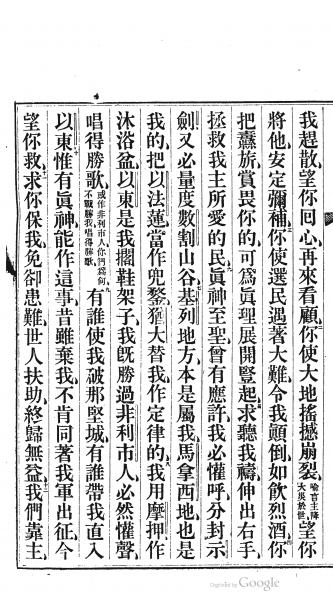 我趕散望你回心再來看顧你使大地搖撼崩裂喻言主降大災於世望你
將他安定彌補你使選民遇著大難令我顛倒如飲烈酒你
把纛旂賞畏你的可爲眞理展開豎起求聽我禱伸出右手
拯救我主所愛的民眞神至聖曾有應許我必懽呼分封示
劍又必量度數割山谷基列地方本是屬我馬拿西地也是
我的把以法蓮當作兜鍪猶大替我作定律的我用摩押作
沐浴盆以東是我擱鞋架子我旣勝過非利市人必然懽聲
唱得勝歌或作非利市人你們爲何不戰勝我唱得勝歌有誰使我破那堅城有誰帶我直入
以東惟有眞神能作這事昔雖棄我不肯同著我軍出征今
望你救求你保我免卻患難世人扶助終歸無益我們靠主
Digitized by Google